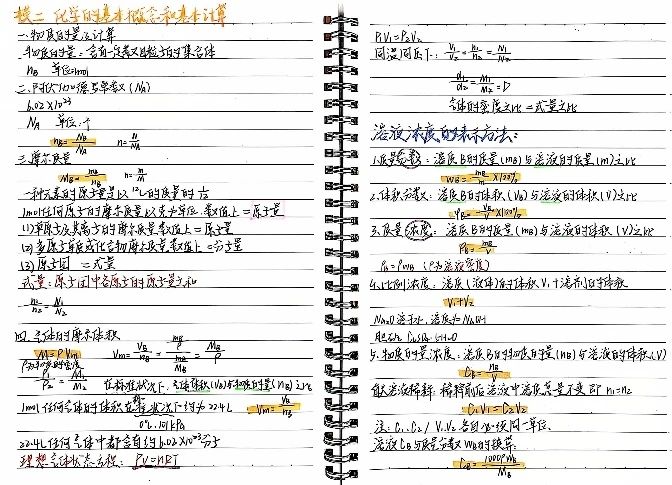 模二 化学的基本概念和基本计算
一.物质的量及计算
物质的量:含有一定数目粒子的集合体
nB 单位:mol
二.阿伏加德罗常数(NA)
6.02×10²³
NA 单位:个
nB=NB/NA n=N/NA
三.摩尔质量
MB=mB/nB n=m/M
一种元素的原子量是以¹²C的质量的1/12
1mol任何原子的摩尔质量以克为单位,数值上=原子量
(1)单原子及其离子的摩尔质量数值上=原子量
(2)多原子单质或化合物摩尔质量数值上=分子量
(3)原子团 =式量
式量:原子团中各原子的原子量之和
n1/n2=N1/N2
四.气体的摩尔体积
M=ρVm Vm=VB/nB=(mB/ρ)/(mB/MB)=MB/ρ
ρ1/ρ2=M1/M2 在标准状况下,气体体积(VB)与物质的量(nB)之比
1mol任何气体的体积在标准状况下约为22.4L Vm=VB/nB
0℃,101kPa
22.4L任何气体中都含有约6.02×10²³分子
理想气体状态方程:PV=nRT
P1V1=P2V2
同温同压下:V1/V2=n1/n2=N1/N2
d1/d2=M1/M2=D
气体的密度之比=式量之比
溶液浓度的表示方法:
1.质量分数:溶质B的质量(mB)与溶液的质量(m)之比
wB=mB/m×100%
2.体积分数:溶质B的体积(VB)与溶液的体积(V)之比
φB=VB/V×100%
3.质量浓度:溶质B的质量(mB)与溶液的体积(V)之比
ρB=mB/V
ρB=ρwB(ρ为溶液密度)
4.比例浓度:溶质(液体)的体积V1+溶剂的体积
V1+V2
Na2O溶于水,溶质为NaOH
5.物质的量浓度:溶质B的物质的量(nB)与溶液的体积(V)
CB=nB/V
浓溶液稀释:稀释前后溶液中溶质总量不变 即n1=n2
C1V1=C2V2
注:C1.C2/V1.V2各自必须同一单位.
溶液CB与质量分数WB的换算:
CB=1000ρWB/MB